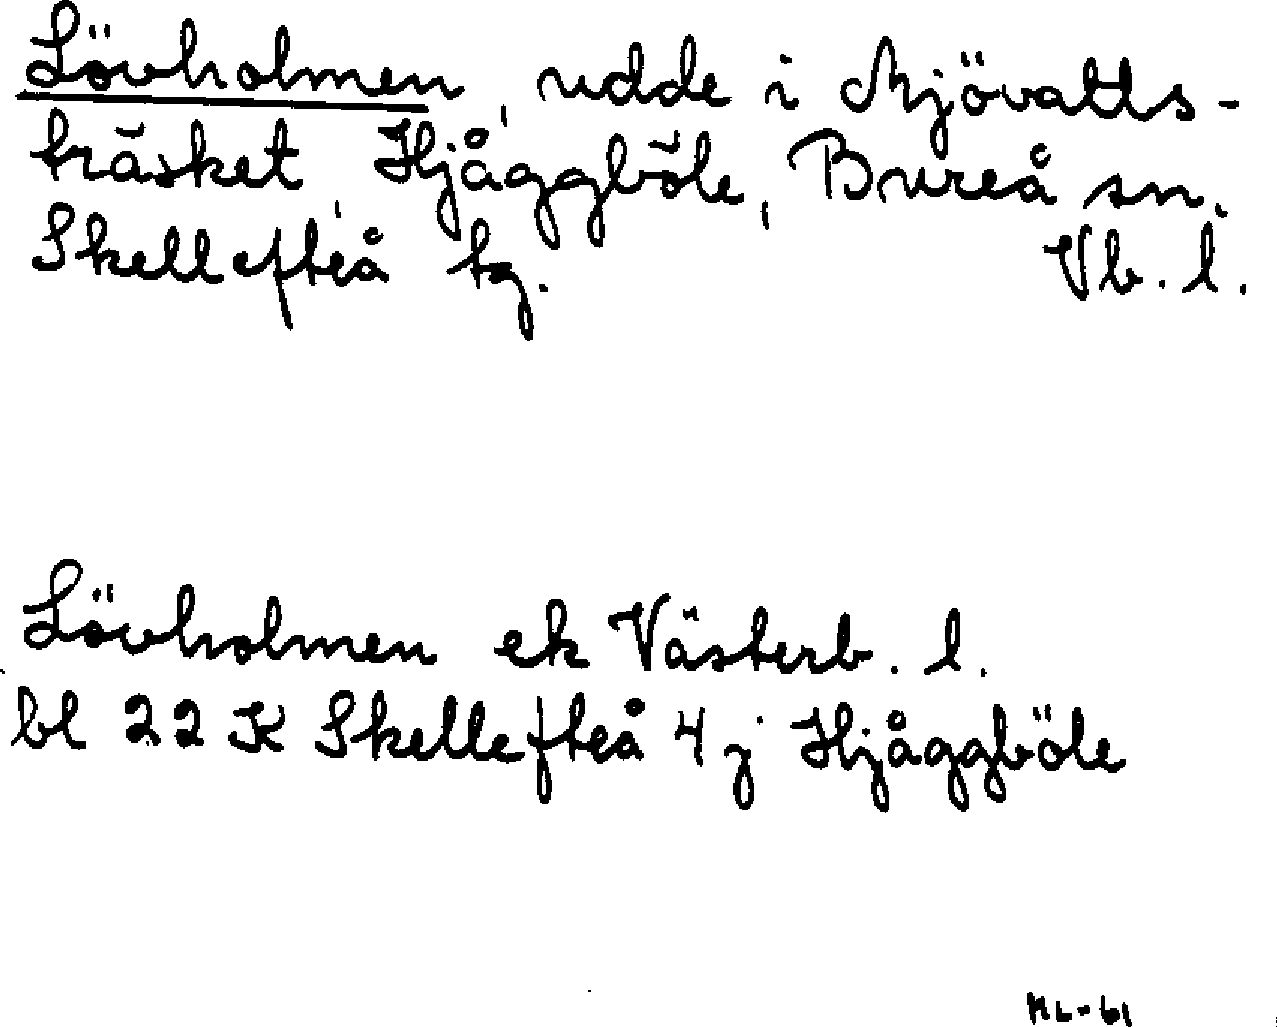 Lövholmen, udde i Mjövatts-
träsket, Hjåggböle, Bureå sn.
Skellefteå tg. Vb. l.
Lövholmen ek Västerb. l.
bl 22 K Skellefteå 4 j Hjåggböle
ML-61